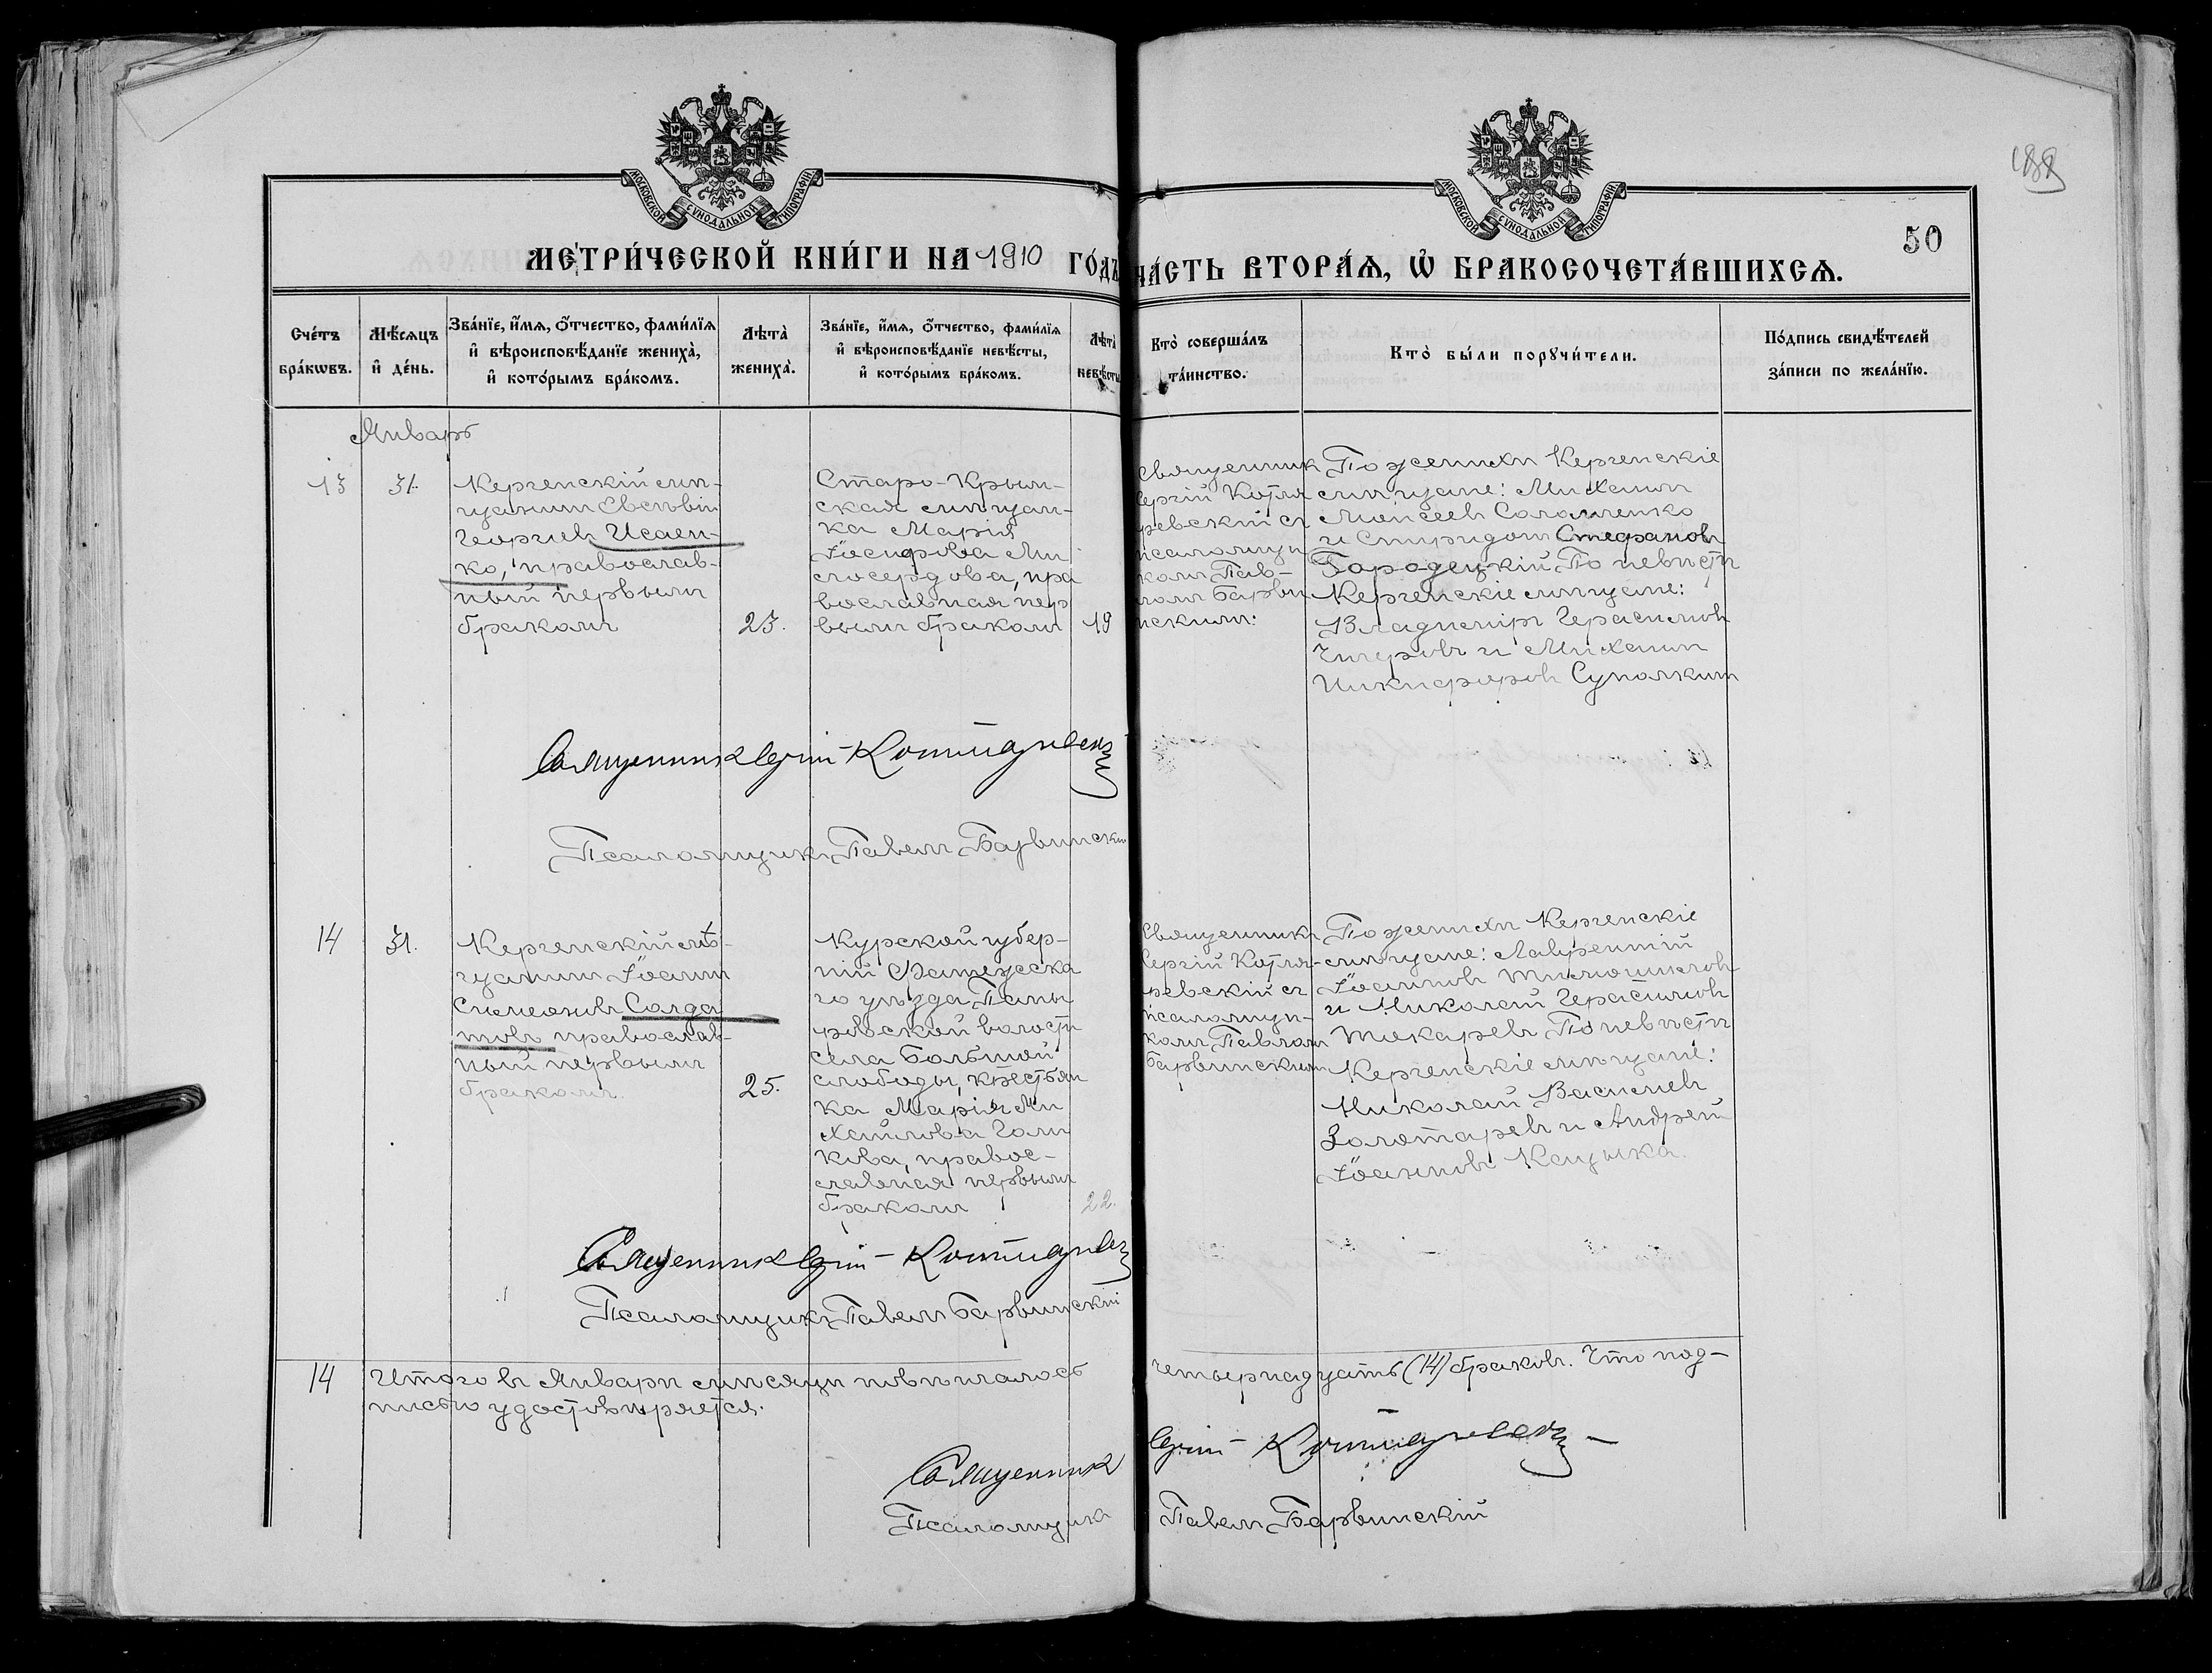 188
50
МОСКОВСКОЙ СѴНОДАЛЬНОЙ ТИПОГРАФІИ
МОСКОВСКОЙ СѴНОДАЛЬНОЙ ТИПОГРАФІИ
МЕТРИ́ЧЕСКОЙ КНИ́ГИ НА 1910 ГО́ДЪ ЧА́СТЬ ВТОРА́Ѧ, Ѽ БРАКОСОЧЕТА́ВШИХСѦ.
Сче́тъ
бра́кѡвъ.
Мѣ́сяцъ
и҆ де́нь.
Зва́нїе, и҆́мя, ѻ҆́тчество, фами́лїя
и҆ вѣроисповѣ́данїе жениха̀,
и҆ кото́рымъ бра́комъ.
Лѣта̀
жениха̀.
Зва́нїе, и҆́мя, ѻ҆́тчество, фами́лїя
и҆ вѣроисповѣ́данїе невѣ́сты,
и҆ кото́рымъ бра́комъ.
Лѣта̀
невѣ́сты
Кто̀ соверша́лъ
та́инство.
Кто̀ бы́ли порꙋчи́тели.
По́дпись свидѣ́телей
за́писи по жела́нїю.
Январь
13
31.
Керченскій мѣ-
щанинъ Евсевій
Георгіевъ Исаен-
ко, православ-
ный первымъ
бракомъ
23.
Старо-Крым-
ская мѣщан-
ка Марія
Іосифова Ми
лосердова, пра
вославная пер
вымъ бракомъ
19
Священникъ
Сергій Котля
ревскій съ
псаломщи
комъ Пав-
ломъ Барви
нскимъ.
По женихѣ Керченскіе
мѣщане: Михаилъ
Моисеевъ Соломченко
и Спиридонъ Стефановъ
Городецкій По невѣстѣ
Керченскіе мѣщане:
Владиміръ Герасимовъ
Чигровъ и Михаилъ
Никифоровъ Супомкинъ
Священникъ Сергій Котляревскій
Псаломщикъ Павелъ Барвинскій
14
31.
Керченскій мѣ-
щанинъ Іоаннъ
Симеоновъ Солда
товъ православ-
ный первымъ
бракомъ.
25.
Курской губер-
ніи Фатежска
го уѣзда Паны
ревской волости
села Большой
слободы, крестьян
ка Марія Ми
хайлова Голи
кова, правос-
лавная первымъ
бракомъ
22.
Священникъ
Сергій Котля-
ревскій съ
псаломщи-
комъ Павломъ
Барвинскимъ
По женихѣ Керченскіе
мѣщане: Лаврентій
Іоанновъ
и Николай Герасимовъ
Токаревъ По невѣстѣ
Керченскіе мѣщане:
Николай Василіевъ
Золотаревъ и Андрей
Іоанновъ Кацыка.
Священникъ Сергій Котляревскій
Псаломщикъ Павелъ Барвинскій
14
Итого въ Январѣ мѣсяцѣ повѣнчалось четырнадцать (14) браковъ. Что под-
писью удостовѣряется.
Священникъ Сергій Котляревскій
Псаломщикъ Павелъ Барвинскій